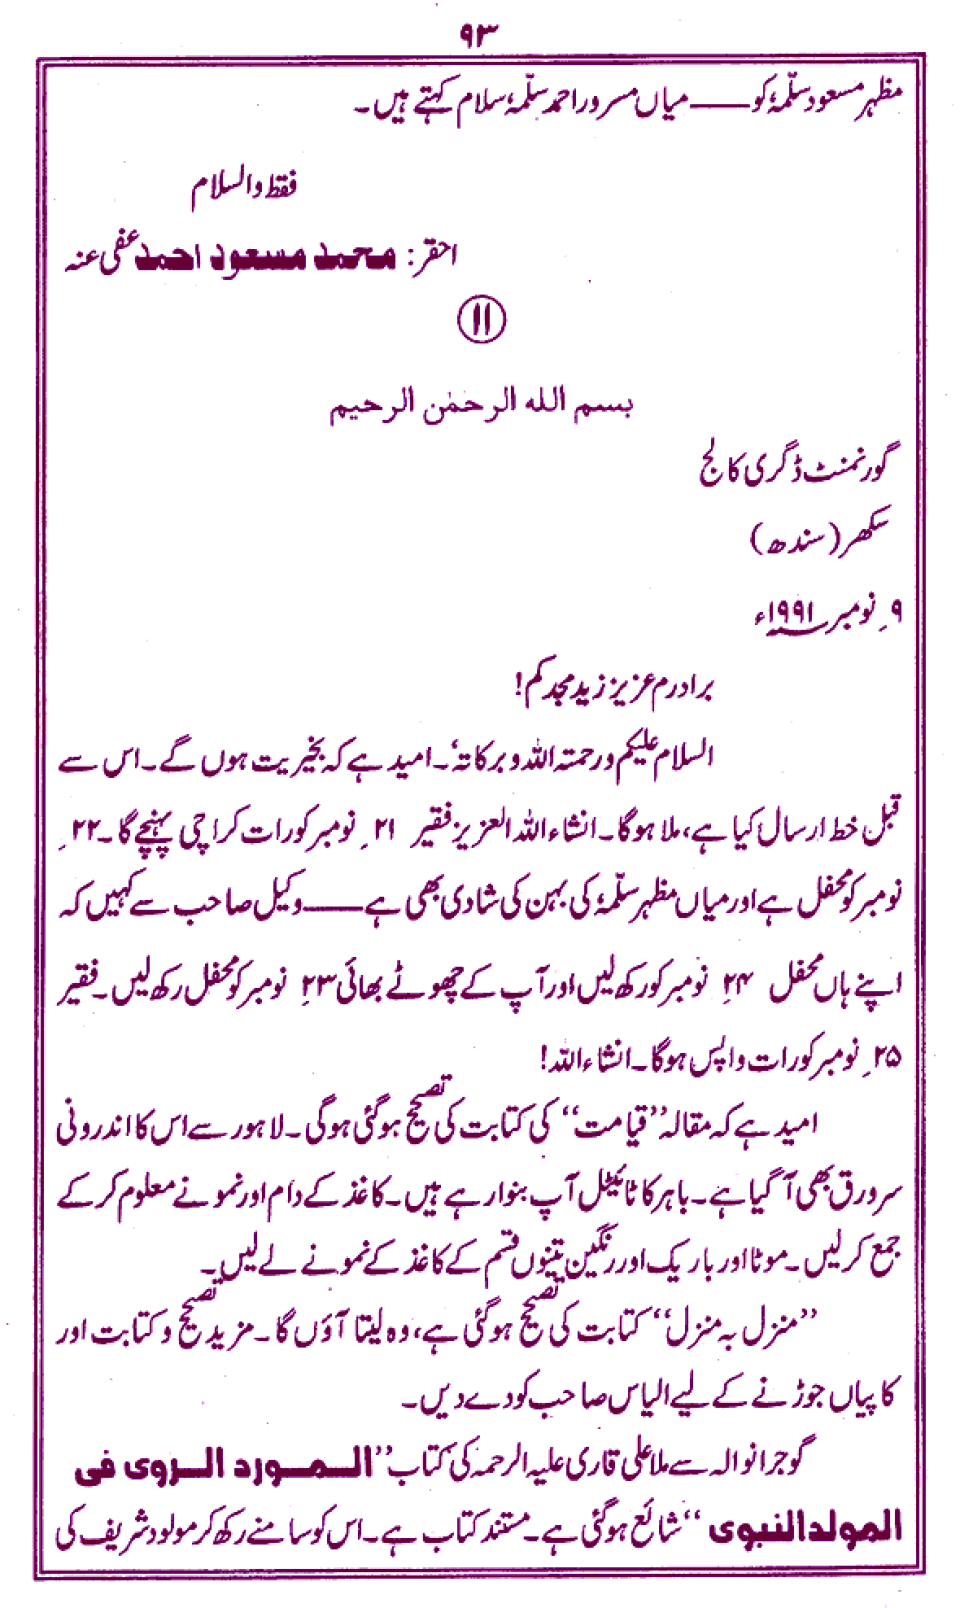 ۹۳
مظہر مسعود سلّمہٗ کو —— میاں مسرور احمد سلّمہٗ سلام کہتے ہیں۔
فقط والسلام
احقر: محمد مسعود احمد عفی عنہ
۱۱
بسم الله الرحمٰن الرحیم
گورنمنٹ ڈگری کالج
سکھر (سندھ)
۹؍ نومبر ۱۹۹۱ء
برادرم عزیز زید مجدکم!
السلام علیکم ورحمتہ اللہ وبرکاتہٗ۔ امید ہے کہ بخیریت ہوں گے۔ اس سے
قبل خط ارسال کیا ہے، ملا ہوگا۔ انشاء اللہ العزیز فقیر ۲۱؍ نومبر کو رات کراچی پہنچے گا۔ ۲۲؍
نومبر کو محفل ہے اور میاں مظہر سلّمہٗ کی بہن کی شادی بھی ہے —— وکیل صاحب سے کہیں کہ
اپنے ہاں محفل ۲۴؍ نومبر کو رکھ لیں اور آپ کے چھوٹے بھائی ۲۳؍ نومبر کو محفل رکھ لیں۔ فقیر
۲۵؍ نومبر کو رات واپس ہوگا۔ انشاء اللہ!
امید ہے کہ مقالہ ’’قیامت‘‘ کی کتابت کی تصحیح ہوگئی ہوگی۔ لاہور سے اس کا اندرونی
سرورق بھی آگیا ہے۔ باہر کا ٹائیٹل آپ بنوار ہے ہیں۔ کاغذ کے دام اور نمونے معلوم کر کے
جمع کرلیں۔ موٹا اور باریک اور رنگین تینوں قسم کے کاغذ کے نمونے لے لیں۔
’’منزل بہ منزل‘‘ کتابت کی تصحیح ہوگئی ہے، وہ لیتا آؤں گا۔ مزید تصحیح و کتابت اور
کاپیاں جوڑنے کے لیے الیاس صاحب کو دے دیں۔
گوجرانوالہ سے ملا علی قاری علیہ الرحمہ کی کتاب ’’المورد الروی فی
المولد النبوی‘‘ شائع ہوگئی ہے۔ مستند کتاب ہے۔ اس کو سامنے رکھ کر مولود شریف کی